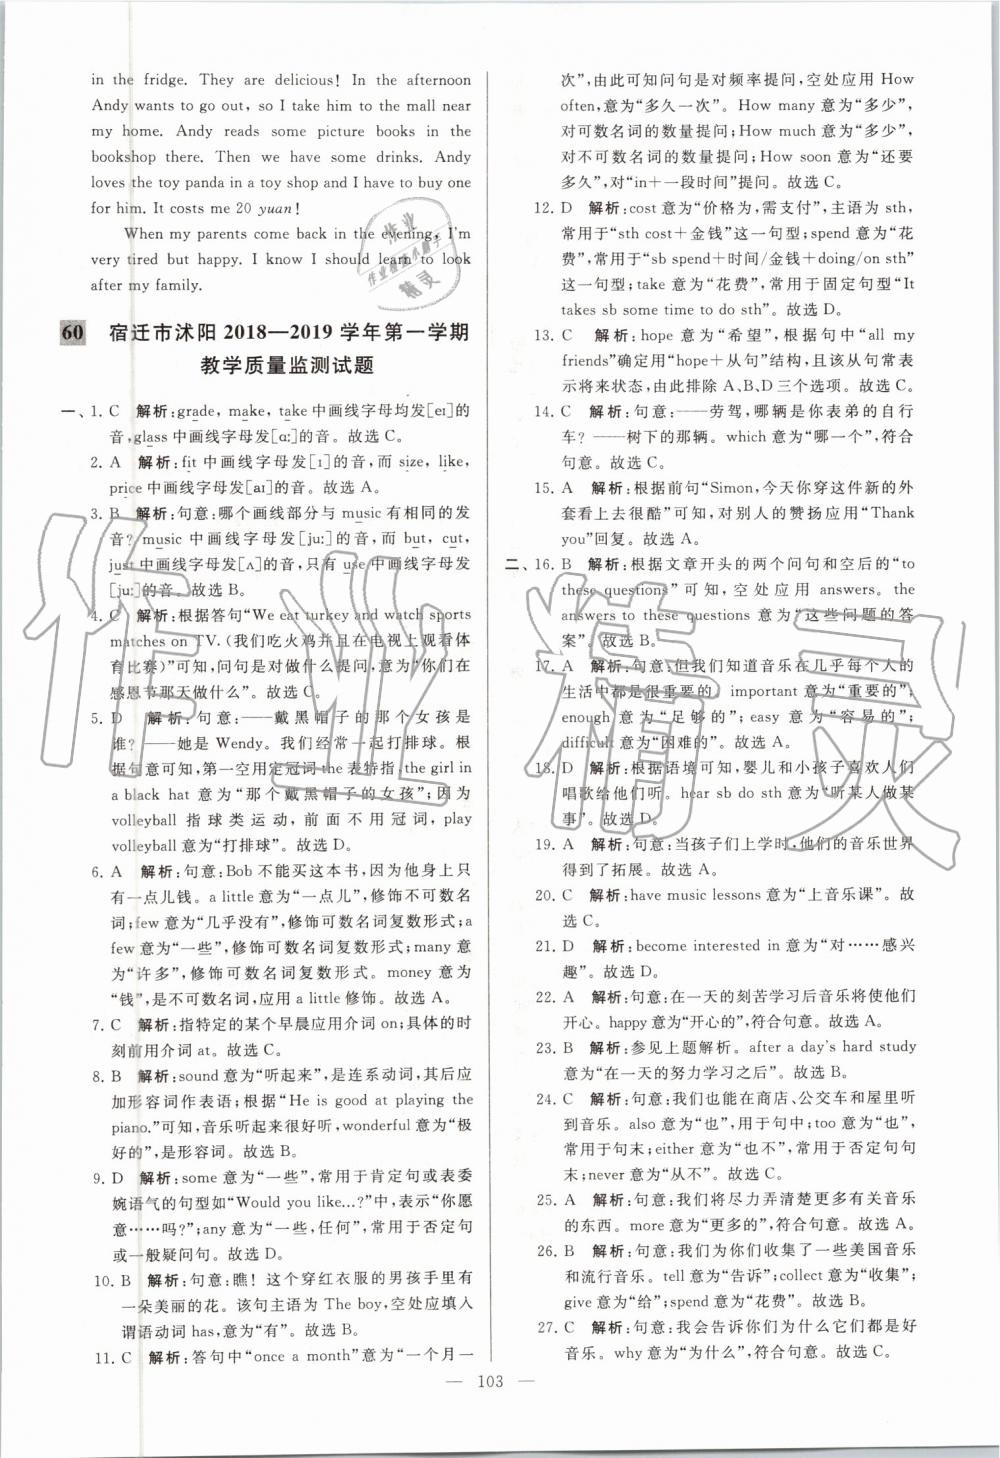 in the fridge. They are delicious! In the afternoon
Andy wants to go out, so I take him to the mall near
my home. Andy reads some picture books in the
bookshop there. Then we have some drinks. Andy
loves the toy panda in a toy shop and I have to buy one
for him. It costs me 20 yuan!
When my parents come back in the evening, I'm
very tired but happy. I know I should learn to look
after my family.
60 宿迁市沭阳 2018—2019 学年第一学期
教学质量监测试题
一、1. C 解析:grade, make, take 中画线字母均发[eɪ]的
音,glass 中画线字母发[ɑː]的音。故选 C。
2. A 解析:fit 中画线字母发[ɪ]的音,而 size, like,
price 中画线字母发[aɪ]的音。故选 A。
3. B 解析:句意:哪个画线部分与 music 有相同的发
音? music 中画线字母发[juː]的音,而 but, cut,
just 中画线字母发[ʌ]的音,只有 use 中画线字母发
[juː]的音。故选 B。
4. C 解析:根据答句“We eat turkey and watch sports
matches on TV.(我们吃火鸡并且在电视上观看体
育比赛)”可知,问句是对做什么提问,意为“你们在
感恩节那天做什么”。故选 C。
5. D 解析:句意:——戴黑帽子的那个女孩是
谁? ——她是 Wendy。我们经常一起打排球。根
据句意可知,第一空用定冠词 the 表特指,the girl in
a black hat 意为“那个戴黑帽子的女孩”;因为
volleyball 指球类运动,前面不用冠词,play
volleyball 意为“打排球”。故选 D。
6. A 解析:句意:Bob 不能买这本书,因为他只
有一点儿钱。a little 意为“一点儿”,修饰不可数名
词;few 意为“几乎没有”,修饰可数名词复数形式;a
few 意为“一些”,修饰可数名词复数形式;many 意
为“许多”,修饰可数名词复数形式。money 意为
“钱”,是不可数名词,应用 a little 修饰。故选 A。
7. C 解析:指特定的某个早晨应用介词 on;具体的时
刻前用介词 at。故选 C。
8. B 解析:sound 意为“听起来”,是连系动词,其后应
加形容词作表语;根据“He is good at playing the
piano.”可知,音乐听起来很好,wonderful 意为“极
好的”,是形容词。故选 B。
9. D 解析:some 意为“一些”,常用于肯定句或表委
婉语气的句型如“Would you like...?”中,表示“你愿
意……吗?”;any 意为“一些,任何”,常用于否定句
或一般疑问句。故选 D。
10. B 解析:句意:瞧! 这个穿红衣服的男孩手里有
一朵美丽的花。该句主语为 The boy,空处应填入
谓语动词 has,意为“有”。故选 B。
11. C 解析:答句中“once a month”意为“一个月一
次”,由此可知问句是对频率提问,空处应用 How
often,意为“多久一次”。How many 意为“多少”,
对可数名词的数量提问;How much 意为“多少”,
对不可数名词的数量提问;How soon 意为“还要
多久”,对“in+一段时间”提问。故选 C。
12. D 解析:cost 意为“价格为,需支付”,主语为 sth,
常用于“sth cost+金钱”这一句型;spend 意为“花
费”,常用于“sb spend+时间/金钱+(in) doing sth”
这一句型;take 意为“花费”,用于固定句型“It
takes sb some time to do sth”。故选 D。
13. C 解析:hope 意为“希望”,根据句中“all my
friends”确定用“hope+从句”结构,且该从句常表
示将来状态,由此排除 A、B、D 三个选项。故选 C。
14. C 解析:句意:——劳驾,哪辆是你表弟的自行
车? ——树下的那辆。which 意为“哪一个”,符合
句意。故选 C。
15. A 解析:根据前句“Simon,今天你穿这件新的外
套看上去很酷”可知,对别人的赞扬应用“Thank
you”回复。故选 A。
二、16. B 解析:根据文章开头的两个问句和空后的“to
these questions”可知,空处应用 answers。the
answers to these questions 意为“这些问题的答
案”。故选 B。
17. A 解析:句意:但我们知道音乐在几乎每个人的
生活中都是很重要的。important 意为“重要的”;
enough 意为“足够的”;easy 意为“容易的”;
difficult 意为“困难的”。故选 A。
18. D 解析:根据语境可知,婴儿和小孩子喜欢人们
唱歌给他们听。hear sb do sth 意为“听某人做某
事”。故选 D。
19. A 解析:句意:当孩子们上学时,他们的音乐世界
得到了拓展。故选 A。
20. C 解析:have music lessons 意为“上音乐课”。故
选 C。
21. D 解析:become interested in 意为“对……感兴
趣”。故选 D。
22. A 解析:句意:在一天的刻苦学习后音乐将使他们
开心。happy 意为“开心的”,符合句意。故选 A。
23. B 解析:参见上题解析。after a day's hard study
意为“在一天的努力学习之后”。故选 B。
24. C 解析:句意:我们也能在商店、公交车和屋里听
到音乐。also 意为“也”,用于句中;too 意为“也”,
常用于句末;either 意为“也不”,常用于否定句句
末;never 意为“从不”。故选 C。
25. A 解析:句意:我们将尽力弄清楚更多有关音乐
的东西。more 意为“更多的”,符合句意。故选 A。
26. B 解析:句意:我们为你们收集了一些美国音乐
和流行音乐。tell 意为“告诉”;collect 意为“收集”;
give 意为“给”;spend 意为“花费”。故选 B。
27. C 解析:句意:我会告诉你们为什么它们都是好
音乐。why 意为“为什么”,符合句意。故选 C。
— 103 —
作业
作业检查小助手
精灵
作业精灵